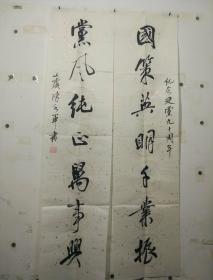 纪念建党九十周年
國策英明千業振
黨風純正萬事興